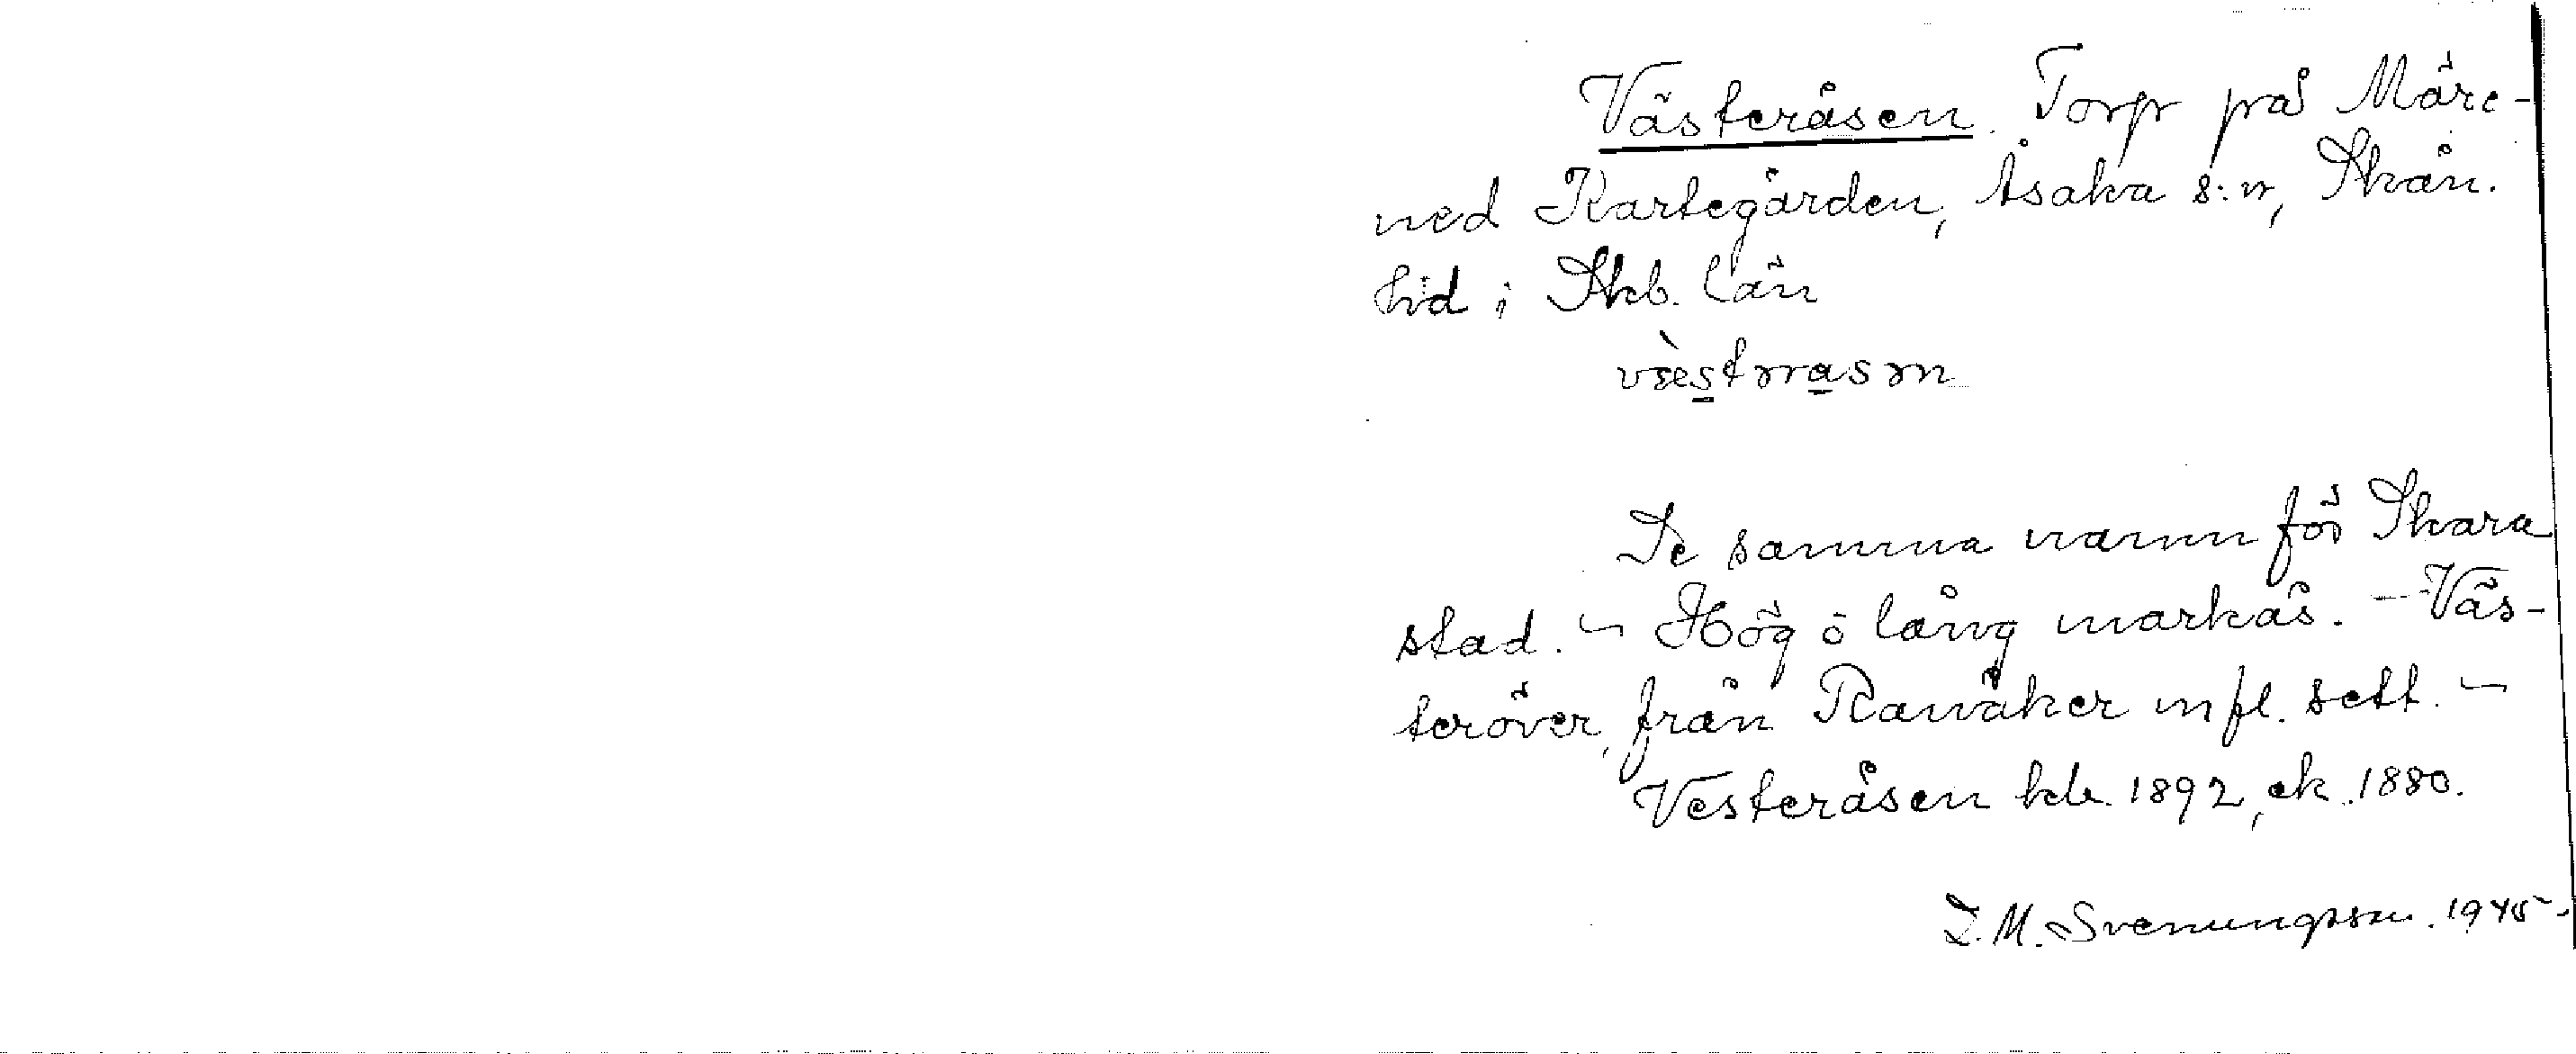 Västeråsen. Torp på Märe-
ned Kartegården, Åsaka s:n, Skån.
hd i Skb. län
De samma namn för Skara
stad. – Hög o lång markås. – Väs-
teröver, från Ranåker mfl. sett. –
Vesteråsen kb. 1892, ek. 1880.
L. M. Svenungsson. 1945.